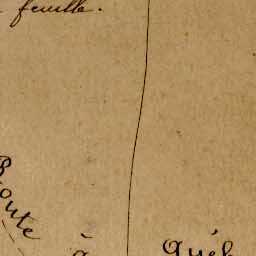 feuille.
Route
à
Québ